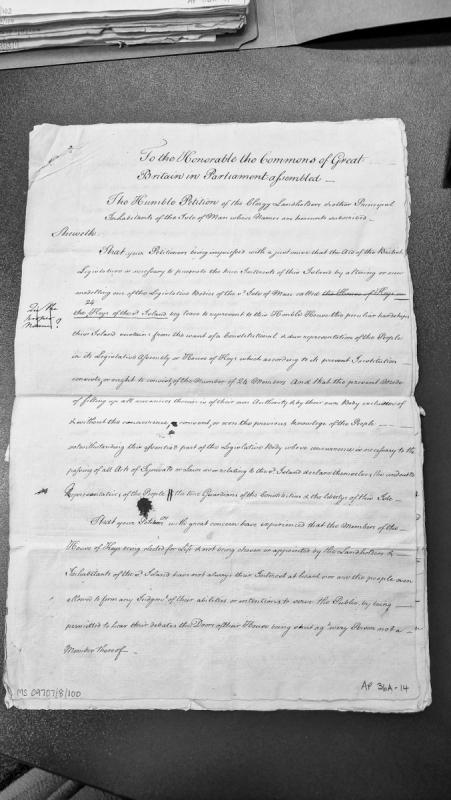 To the Honorable the Commons of Great
Britain in Parliament assembled —
The Humble Petition of the Clergy Landholders & other Principal
Inhabitants of the Isle of Man whose Names are hereunto subscribed —
Sheweth
That your Petitioners being impressed with a just sense that the Aid of the British
Legislature is necessary to promote the true Interests of this Island by altering or new
modelling one of the Legislative Bodies of the sd. Isle of Man called the House of Keys or
24
the Keys of the sd. Island beg leave to represent to this Honble. House the peculiar hardships
Qu the
proper
Name?
this Island sustains from the want of a Constitutional & due representation of the People
in its Legislative Assembly or House of Keys which according to its present Institution
consists, or ought to consist of the Number of 24 Members And that the present Mode
of filling up all vacancies therein is of their own Authority & by their own Body exclusive of
& without the concurrence, consent, or even the previous knowledge of the People —
notwithstanding this essential part of the Legislative Body whose concurrence is necessary to the
passing of all Acts of Tynwald or Laws relating to the sd. Island declare themselves the
Representatives of the People the true Guardians of the Constitution & the liberty of this Isle —
That your Petitioners with great concern have experienced that the Members of the
House of Keys being elected for Life & not being chosen or appointed by the Landholders &
Inhabitants of the sd. Island have not always their Interest at heart, nor are the people even
allowed to form any Judgmt. of their abilities or intentions to serve the Public, by being
permitted to hear their debates the Doors of their House being shut agt. every Person not a
Member thereof —
MS 09707/8/100
AP 36A-14